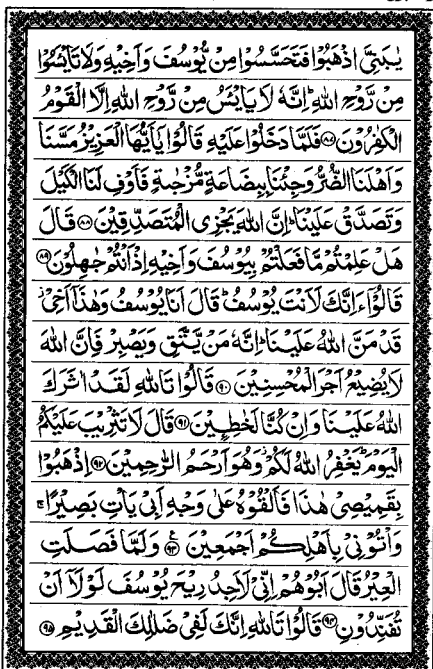 يٰبَنِيَّ اذْهَبُوْا فَتَحَسَّسُوْا مِنْ يُّوْسُفَ وَاَخِيْهِ وَلَا تَايْـَٔسُوْا
مِنْ رَّوْحِ اللّٰهِ ؕ اِنَّهٗ لَا يَايْـَٔسُ مِنْ رَّوْحِ اللّٰهِ اِلَّا الْقَوْمُ
الْكٰفِرُوْنَ ۝۸۷ فَلَمَّا دَخَلُوْا عَلَيْهِ قَالُوْا يٰۤاَيُّهَا الْعَزِيْزُ مَسَّنَا
وَاَهْلَنَا الضُّرُّ وَجِئْنَا بِبِضَاعَةٍ مُّزْجٰىةٍ فَاَوْفِ لَنَا الْكَيْلَ
وَتَصَدَّقْ عَلَيْنَا ؕ اِنَّ اللّٰهَ يَجْزِى الْمُتَصَدِّقِيْنَ ۝۸۸ قَالَ
هَلْ عَلِمْتُمْ مَّا فَعَلْتُمْ بِيُوْسُفَ وَاَخِيْهِ اِذْ اَنْتُمْ جٰهِلُوْنَ ۝۸۹
قَالُوْۤا ءَاِنَّكَ لَاَنْتَ يُوْسُفُ ؕ قَالَ اَنَا يُوْسُفُ وَهٰذَاۤ اَخِىْ ؗ
قَدْ مَنَّ اللّٰهُ عَلَيْنَا ؕ اِنَّهٗ مَنْ يَّتَّقِ وَيَصْبِرْ فَاِنَّ اللّٰهَ
لَا يُضِيْعُ اَجْرَ الْمُحْسِنِيْنَ ۝۹۰ قَالُوْا تَاللّٰهِ لَقَدْ اٰثَرَكَ
اللّٰهُ عَلَيْنَا وَاِنْ كُنَّا لَخٰطِـِٕيْنَ ۝۹۱ قَالَ لَا تَثْرِيْبَ عَلَيْكُمُ
الْيَوْمَ ؕ يَغْفِرُ اللّٰهُ لَكُمْ ؗ وَهُوَ اَرْحَمُ الرّٰحِمِيْنَ ۝۹۲ اِذْهَبُوْا
بِقَمِيْصِىْ هٰذَا فَاَلْقُوْهُ عَلٰى وَجْهِ اَبِىْ يَاْتِ بَصِيْرًا ۚ
وَاْتُوْنِىْ بِاَهْلِكُمْ اَجْمَعِيْنَ ۝۹۳ ع وَلَمَّا فَصَلَتِ
الْعِيْرُ قَالَ اَبُوْهُمْ اِنِّىْ لَاَجِدُ رِيْحَ يُوْسُفَ لَوْلَاۤ اَنْ
تُفَنِّدُوْنِ ۝۹۴ قَالُوْا تَاللّٰهِ اِنَّكَ لَفِىْ ضَلٰلِكَ الْقَدِيْمِ ۝۹۵